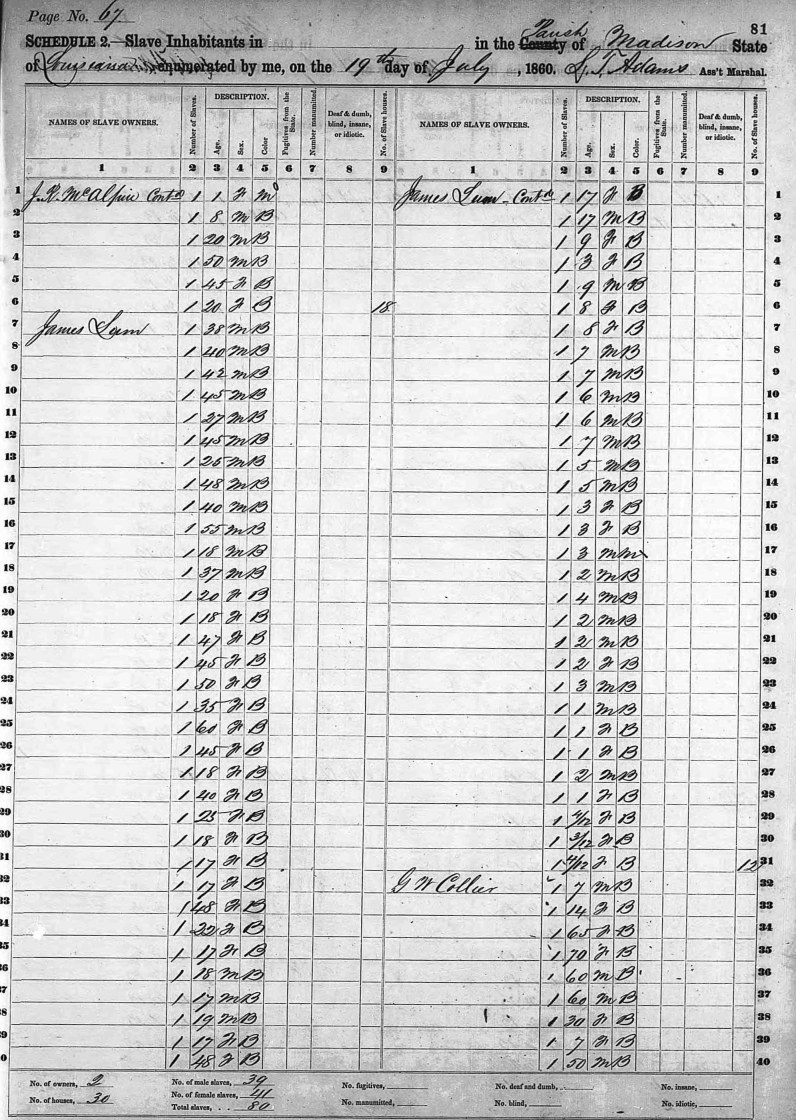 Page No. 67
81
SCHEDULE 2.—Slave Inhabitants in in the County of Parish Madison State
of Louisiana enumerated by me, on the 19th day of July, 1860. S. T. Adams Ass't Marshal.
NAMES OF SLAVE OWNERS. Number of Slaves. DESCRIPTION. Age. Sex. Color. Fugitives from the State. Number manumitted. Deaf & dumb, blind, insane, or idiotic. No. of Slave houses. NAMES OF SLAVE OWNERS. Number of Slaves. DESCRIPTION. Age. Sex. Color. Fugitives from the State. Number manumitted. Deaf & dumb, blind, insane, or idiotic. No. of Slave houses.
1 2 3 4 5 6 7 8 9 1 2 3 4 5 6 7 8 9
1 J. K. McAlpin Contd 1 1 F M James Lum - Contd 1 17 F B 1
2 1 8 M B 1 17 M B 2
3 1 20 M B 1 9 F B 3
4 1 50 M B 1 3 F B 4
5 1 45 F B 1 9 M B 5
6 1 20 F B 18 1 8 F B 6
7 James Lum 1 38 M B 1 8 F B 7
8 1 40 M B 1 7 M B 8
9 1 42 M B 1 7 M B 9
10 1 45 M B 1 6 M B 10
11 1 27 M B 1 6 M B 11
12 1 45 M B 1 7 M B 12
13 1 25 M B 1 5 M B 13
14 1 48 M B 1 5 M B 14
15 1 40 M B 1 3 F B 15
16 1 55 M B 1 3 F B 16
17 1 18 M B 1 3 M M 17
18 1 37 M B 1 2 M B 18
19 1 20 F B 1 4 M B 19
20 1 18 F B 1 2 M B 20
21 1 47 F B 1 2 M B 21
22 1 45 F B 1 2 F B 22
23 1 50 F B 1 3 M B 23
24 1 35 F B 1 1 M B 24
25 1 60 F B 1 1 F B 25
26 1 45 F B 1 1 F B 26
27 1 18 F B 1 2 M B 27
28 1 40 F B 1 1 F B 28
29 1 25 F B 1 /12 F B 29
30 1 18 F B 1 3/12 F B 30
31 1 17 F B 1 4/12 F B 12 31
32 1 17 F B G W Collier 1 7 M B 32
33 1 48 F B 1 14 F B 33
34 1 22 F B 1 65 F B 34
35 1 17 F B 1 70 F B 35
36 1 18 M B 1 60 M B 36
37 1 17 M B 1 60 M B 37
38 1 19 M B 1 30 F B 38
39 1 17 F B 1 7 F B 39
40 1 48 F B 1 50 M B 40
No. of owners, 2 No. of male slaves, 39 No. fugitives, No. deaf and dumb, No. insane,
No. of houses, 30 No. of female slaves, 41 No. manumitted, No. blind, No. idiotic,
Total slaves, 80